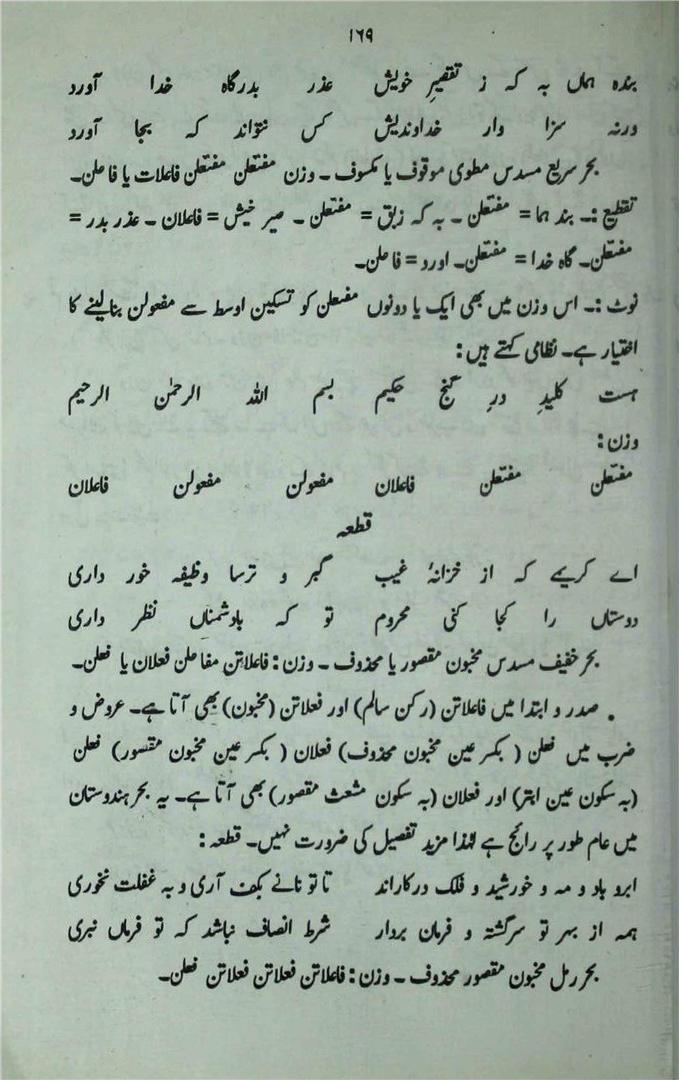 ۱۶۹
بندہ ہماں بہ کہ ز تقصیرِ خویش عذر بدرگاہ خدا آورد
ورنہ سزا وار خداوندیش کس نتواند کہ بجا آورد
بحر سریع مسدس مطوی موقوف یا مکسوف ۔ وزن مفتعلن مفتعلن فاعلات یا فاعلن۔
تقطیع :۔ بند ہما = مفتعلن ۔ بہ کہ زتق = مفتعلن ۔ صیر خیش = فاعلان ۔ عذر بدر =
مفتعلن۔ گاہ خدا = مفتعلن۔ اورد = فاعلن۔
نوٹ :۔ اس وزن میں بھی ایک یا دونوں مفتعلن کو تسکین اوسط سے مفعولن بنا لینے کا
اختیار ہے۔ نظامی کہتے ہیں :
ہست کلیدِ درِ گنج حکیم بسم اللہ الرحمٰن الرحیم
وزن :
مفتعلن مفتعلن فاعلان مفعولن مفعولن فاعلان
قطعہ
اے کریمے کہ از خزانۂ غیب گبر و ترسا وظیفہ خور داری
دوستاں را کجا کنی محروم تو کہ بادشمناں نظر داری
بحر خفیف مسدس مخبون مقصور یا محذوف ۔ وزن : فاعلاتن مفاعلن فعلان یا فعلن۔
صدر و ابتدا میں فاعلاتن (رکن سالم) اور فعلاتن (مخبون) بھی آتا ہے۔ عروض و
ضرب میں فعلن ( بکسر عین مخبون محذوف) فعلان ( بکسر عین مخبون مقسور) فعلن
(بہ سکون عین ابتر) اور فعلان (بہ سکون مشعث مقصور) بھی آتا ہے۔ یہ بحر ہندوستان
میں عام طور پر رائج ہے لہٰذا مزید تفصیل کی ضرورت نہیں۔ قطعہ :
ابرو باد و مہ و خورشید و فلک درکاراند تا تو نانے بکف آری و بہ غفلت نخوری
ہمہ از بہر تو سرگشتہ و فرمان بردار شرط انصاف نباشد کہ تو فرماں نبری
بحر رمل مخبون مقصور محذوف ۔ وزن : فاعلاتن فعلاتن فعلاتن فعلن۔